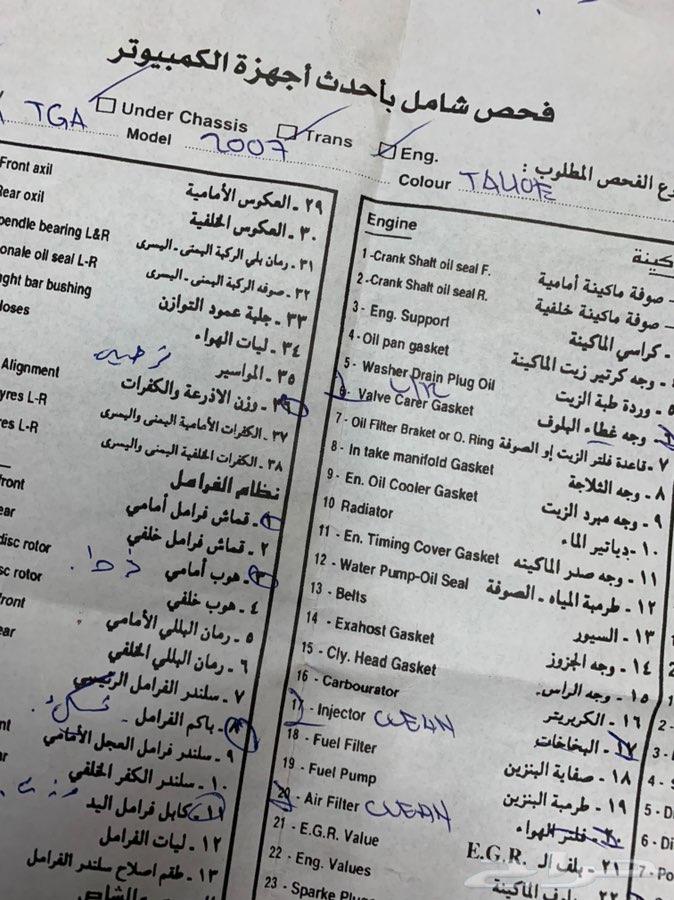 فحص شامل بأحدث أجهزة الكمبيوتر
TGA Under Chassis Trans Eng. ع الفحص المطلوب :
Model 2007 Colour TAHOE
Front axil ٢٩ - العكوس الأمامية
Rear oxil ٣٠ - العكوس الخلفية
pendle bearing L&R ٣١ - رمان بلي الركبة اليمنى - اليسرى
onale oil seal L-R ٣٢ - صوفه الركبة اليمنى - اليسرى
ght bar bushing ٣٣ - جلبة عمود التوازن
loses ٣٤ - ليات الهواء
٣٥ - المواسير
Alignment ٣٦ - وزن الاذرعة والكفرات
yres L-R ٣٧ - الكفرات الأمامية اليمنى واليسرى
res L-R ٣٨ - الكفرات الخلفية اليمنى واليسرى
نظام الفرامل
ront ١ - قماش فرامل أمامي
ear ٢ - قماش فرامل خلفي
disc rotor ٣ - هوب أمامي
sc rotor ٤ - هوب خلفي
front ٥ - رمان البللي الأمامي
ear ٦ - رمان البللي الخلفي
٧ - سلندر الفرامل الرئيسي
٨ - باكم الفرامل
nt ٩ - سلندر فرامل العجل الأمامي
ar ١٠ - سلندر الكفر الخلفي
١١ - كابل فرامل اليد
١٢ - ليات الفرامل
١٣ - طقم اصلاح سلندر الفرامل
Engine كينة
1 -Crank Shaft oil seal F. - صوفة ماكينة أمامية
2 -Crank Shaft oil seal R. - صوفة ماكينة خلفية
3 - Eng. Support - كراسي الماكينة
4 -Oil pan gasket - وجه كرتير زيت الماكينة
5 - Washer Drain Plug Oil ٥ - وردة طبة الزيت
6 - Valve Carer Gasket - وجه غطاء البلوف
7 - Oil Filter Braket or O. Ring ٧ - قاعدة فلتر الزيت إو الصوفة
8 - In take manifold Gasket ٨ - وجه الثلاجة
9 - En. Oil Cooler Gasket ٩ - وجه مبرد الزيت
10 Radiator ١٠ - دياتير الماء
11 - En. Timing Cover Gasket ١١ - وجه صدر الماكينه
12 - Water Pump-Oil Seal ١٢ - طرمبة المياه - الصوفة
13 - Belts ١٣ - السيور
14 - Exahost Gasket ١٤ - وجه الجزوز
15 - Cly. Head Gasket ١٥ - وجه الراس
16 - Carbourator ١٦ - الكربريتر
17 - Injector CLEAN ١٧ - البخاخات
18 - Fuel Filter ١٨ - صفاية البنزين
19 - Fuel Pump ١٩ - طرمبة البنزين
20 - Air Filter CLEAN ٢٠ - فلتر الهواء
21 - E.G.R. Value ٢١ - بلف الـ E.G.R.
22 - Eng. Values
23 - Sparke Plu